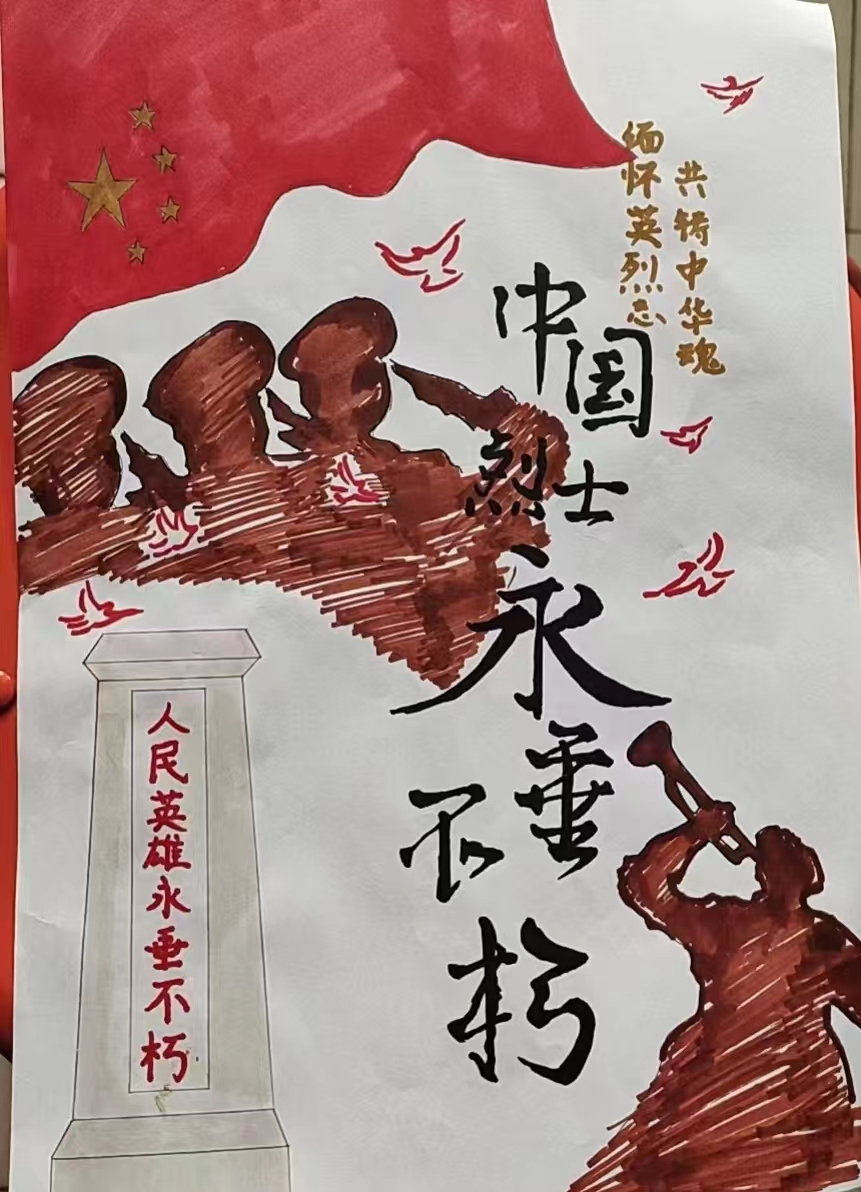 缅怀英烈志
共铸中华魂
中国
烈士
永垂
不朽
人民英雄永垂不朽